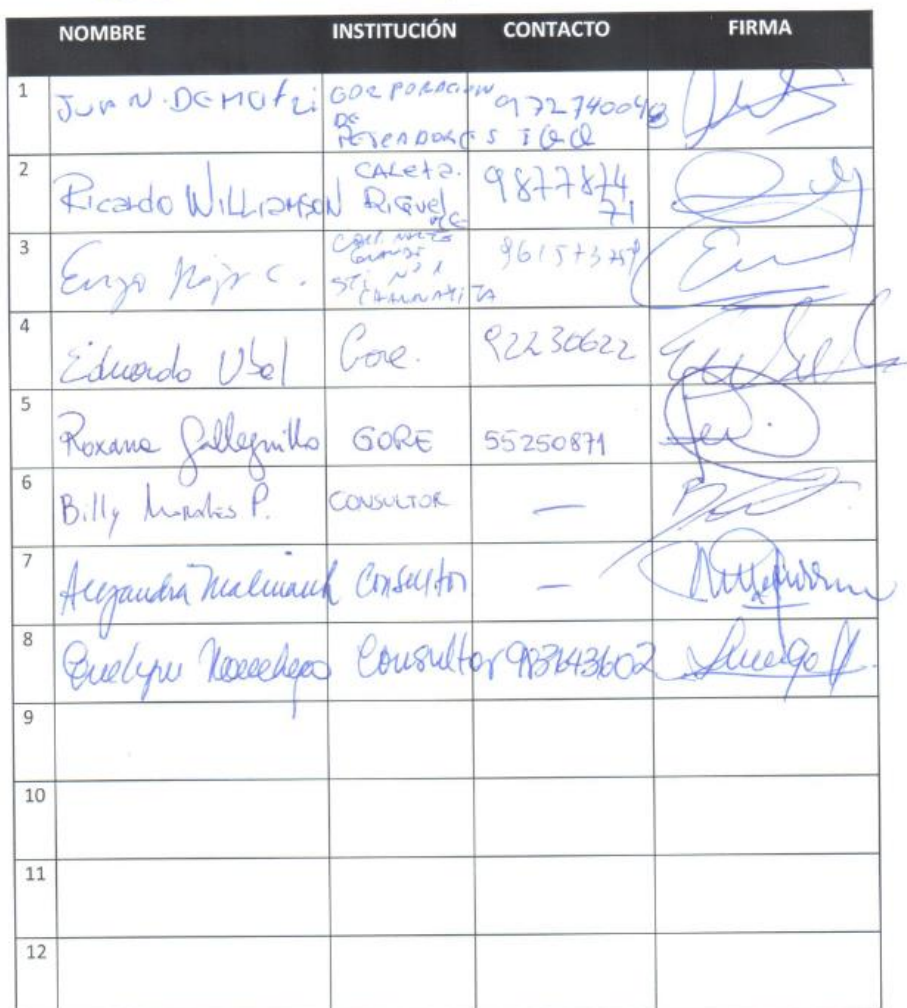 NOMBRE INSTITUCIÓN CONTACTO FIRMA
1 JUAN DEMUTRI CORPORACION DE PESCADORES IQQ 972740048
2 Ricardo WILLIAMSON CALETA. RIQUELME 987787471
3 Enzo C. STI Nº 1
4 Eduardo Core. 92230622
5 Roxana Galleguillo GORE 55250871
6 Billy Morales P. CONSULTOR —
7 Alejandra Malinarich Consultor —
8 Evelyn Consultor 983643602
9
10
11
12